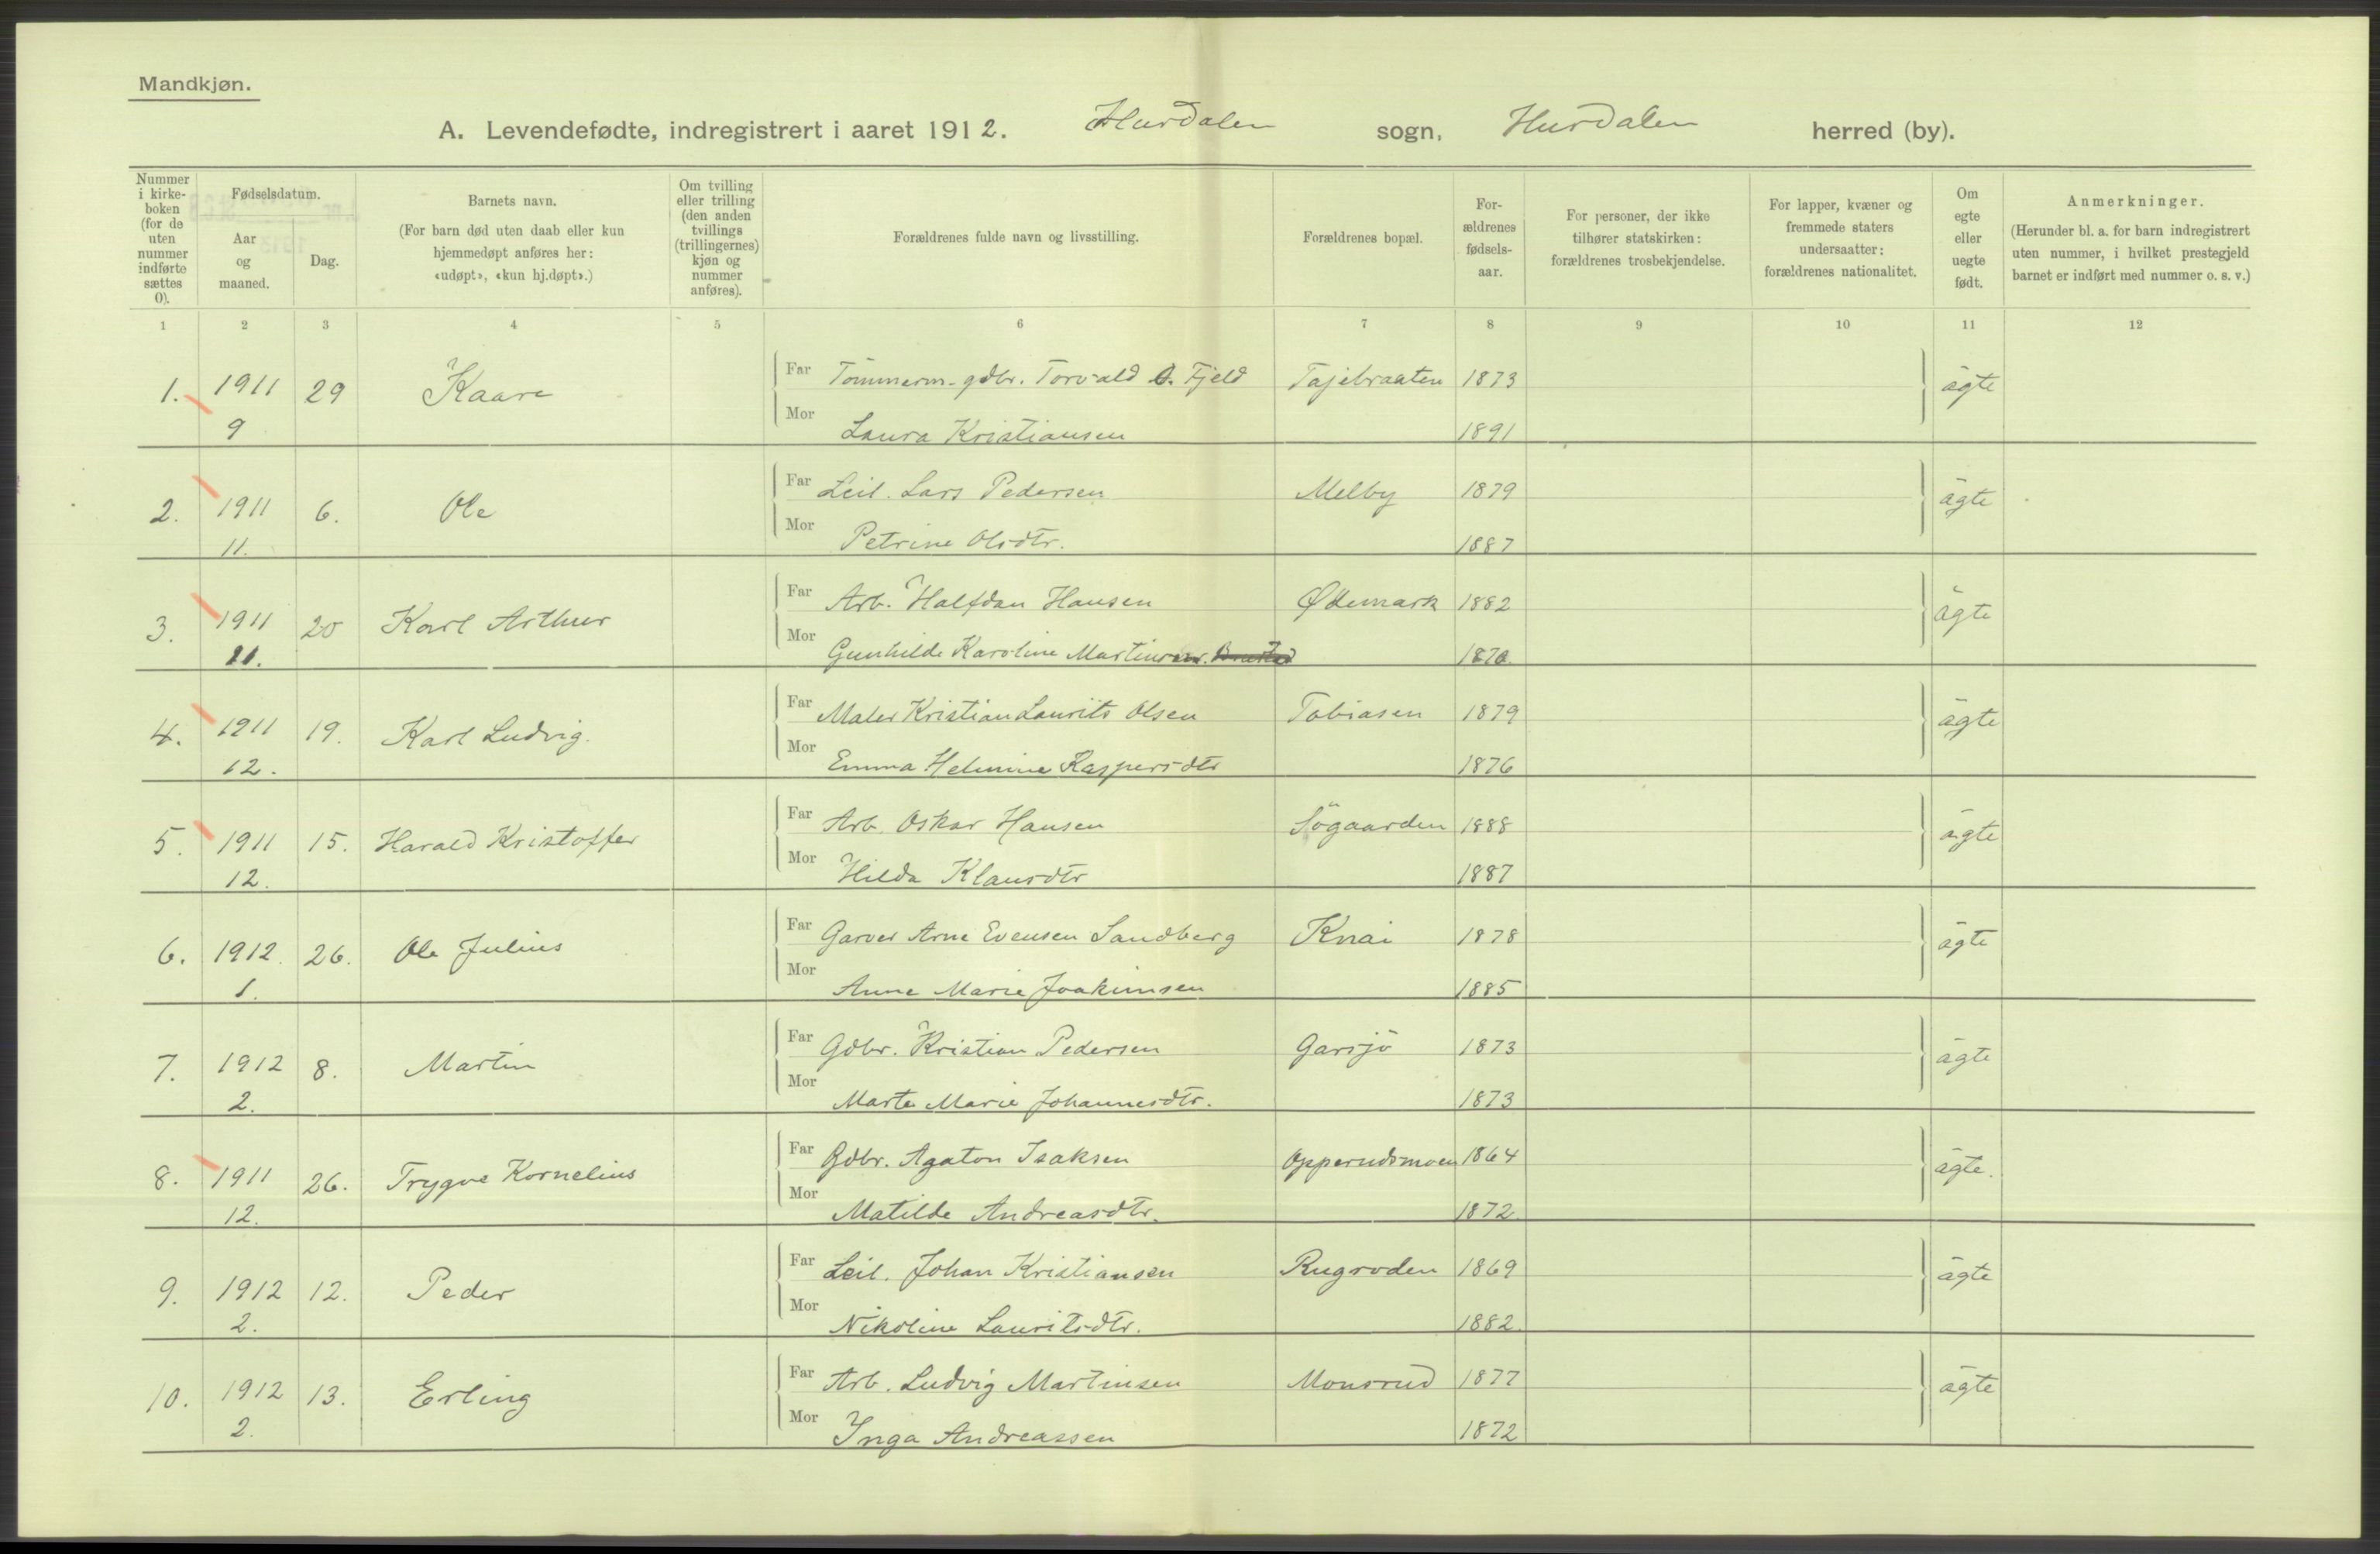 Mandkjøn.
A. Levendefødte, indregistrert i aaret 1912. Hurdalen sogn, Hurdalen herred (by).
Nummer i kirke- boken (for de uten nummer indførte sættes 0).
Fødselsdatum.
Aar og maaned.
Dag.
Barnets navn.
(For barn død uten daab eller kun hjemmedøpt anføres her: «udøpt», «kun hj.døpt».)
Om tvilling eller trilling (den anden tvillings (trillingernes) kjøn og nummer anføres).
Forældrenes fulde navn og livsstilling.
Forældrenes bopæl.
For- ældrenes fødsels- aar.
For personer, der ikke tilhører statskirken: forældrenes trosbekjendelse.
For lapper, kvæner og fremmede staters undersaatter: forældrenes nationalitet.
Om egte eller uegte født.
Anmerkninger.
(Herunder bl. a. for barn indregistrert uten nummer, i hvilket prestegjeld barnet er indført med nummer o. s. v.)
1 2 3 4 5 6 7 8 9 10 11 12
1. 1911 29 Kaare Far Tömmerm. gdbr. Torvald O. Fjeld Tajebraaten 1873 ägte
9 Mor Laura Kristiansen 1891
2. 1911 6. Ole Far Leil. Lars Pedersen Melby 1879 ägte
11. Mor Petrine Olsdtr. 1887
3. 1911 20 Karl Arthur Far Arb. Halfdan Hansen Ødemark 1882 ägte
11. Mor Gunhilde Karoline Martinsen. 1870.
4. 1911 19. Karl Ludvig. Far Maler Kristian Laurits Olsen Tobiasen 1879 ägte
12. Mor Emma Helmine Kaspersdtr 1876
5. 1911 15. Harald Kristoffer Far Arb. Oskar Hansen Sögaarden 1888 ägte
12. Mor Hilda Klausdtr 1887
6. 1912. 26. Ole Julius Far Garver Arne Evensen Sandberg Knai 1878 ägte
1. Mor Anne Marie Joakimsen 1885
7. 1912 8. Martin Far Gdbr. Kristian Pedersen Garsjö 1873 ägte
2. Mor Marte Marie Johannesdtr. 1873
8. 1911 26. Trygve Kornelius Far Gdbr. Agaton Isaksen Opperudsmoen 1864 ägte.
12. Mor Matilde Andreasdtr. 1872.
9. 1912 12. Peder Far Leil. Johan Kristiansen Rugroden 1869 ägte
2. Mor Nikoline Lauritsdtr. 1882.
10. 1912 13. Erling Far Arb. Ludvig Martinsen Monsrud 1877 ägte
2. Mor Inga Andreassen 1872